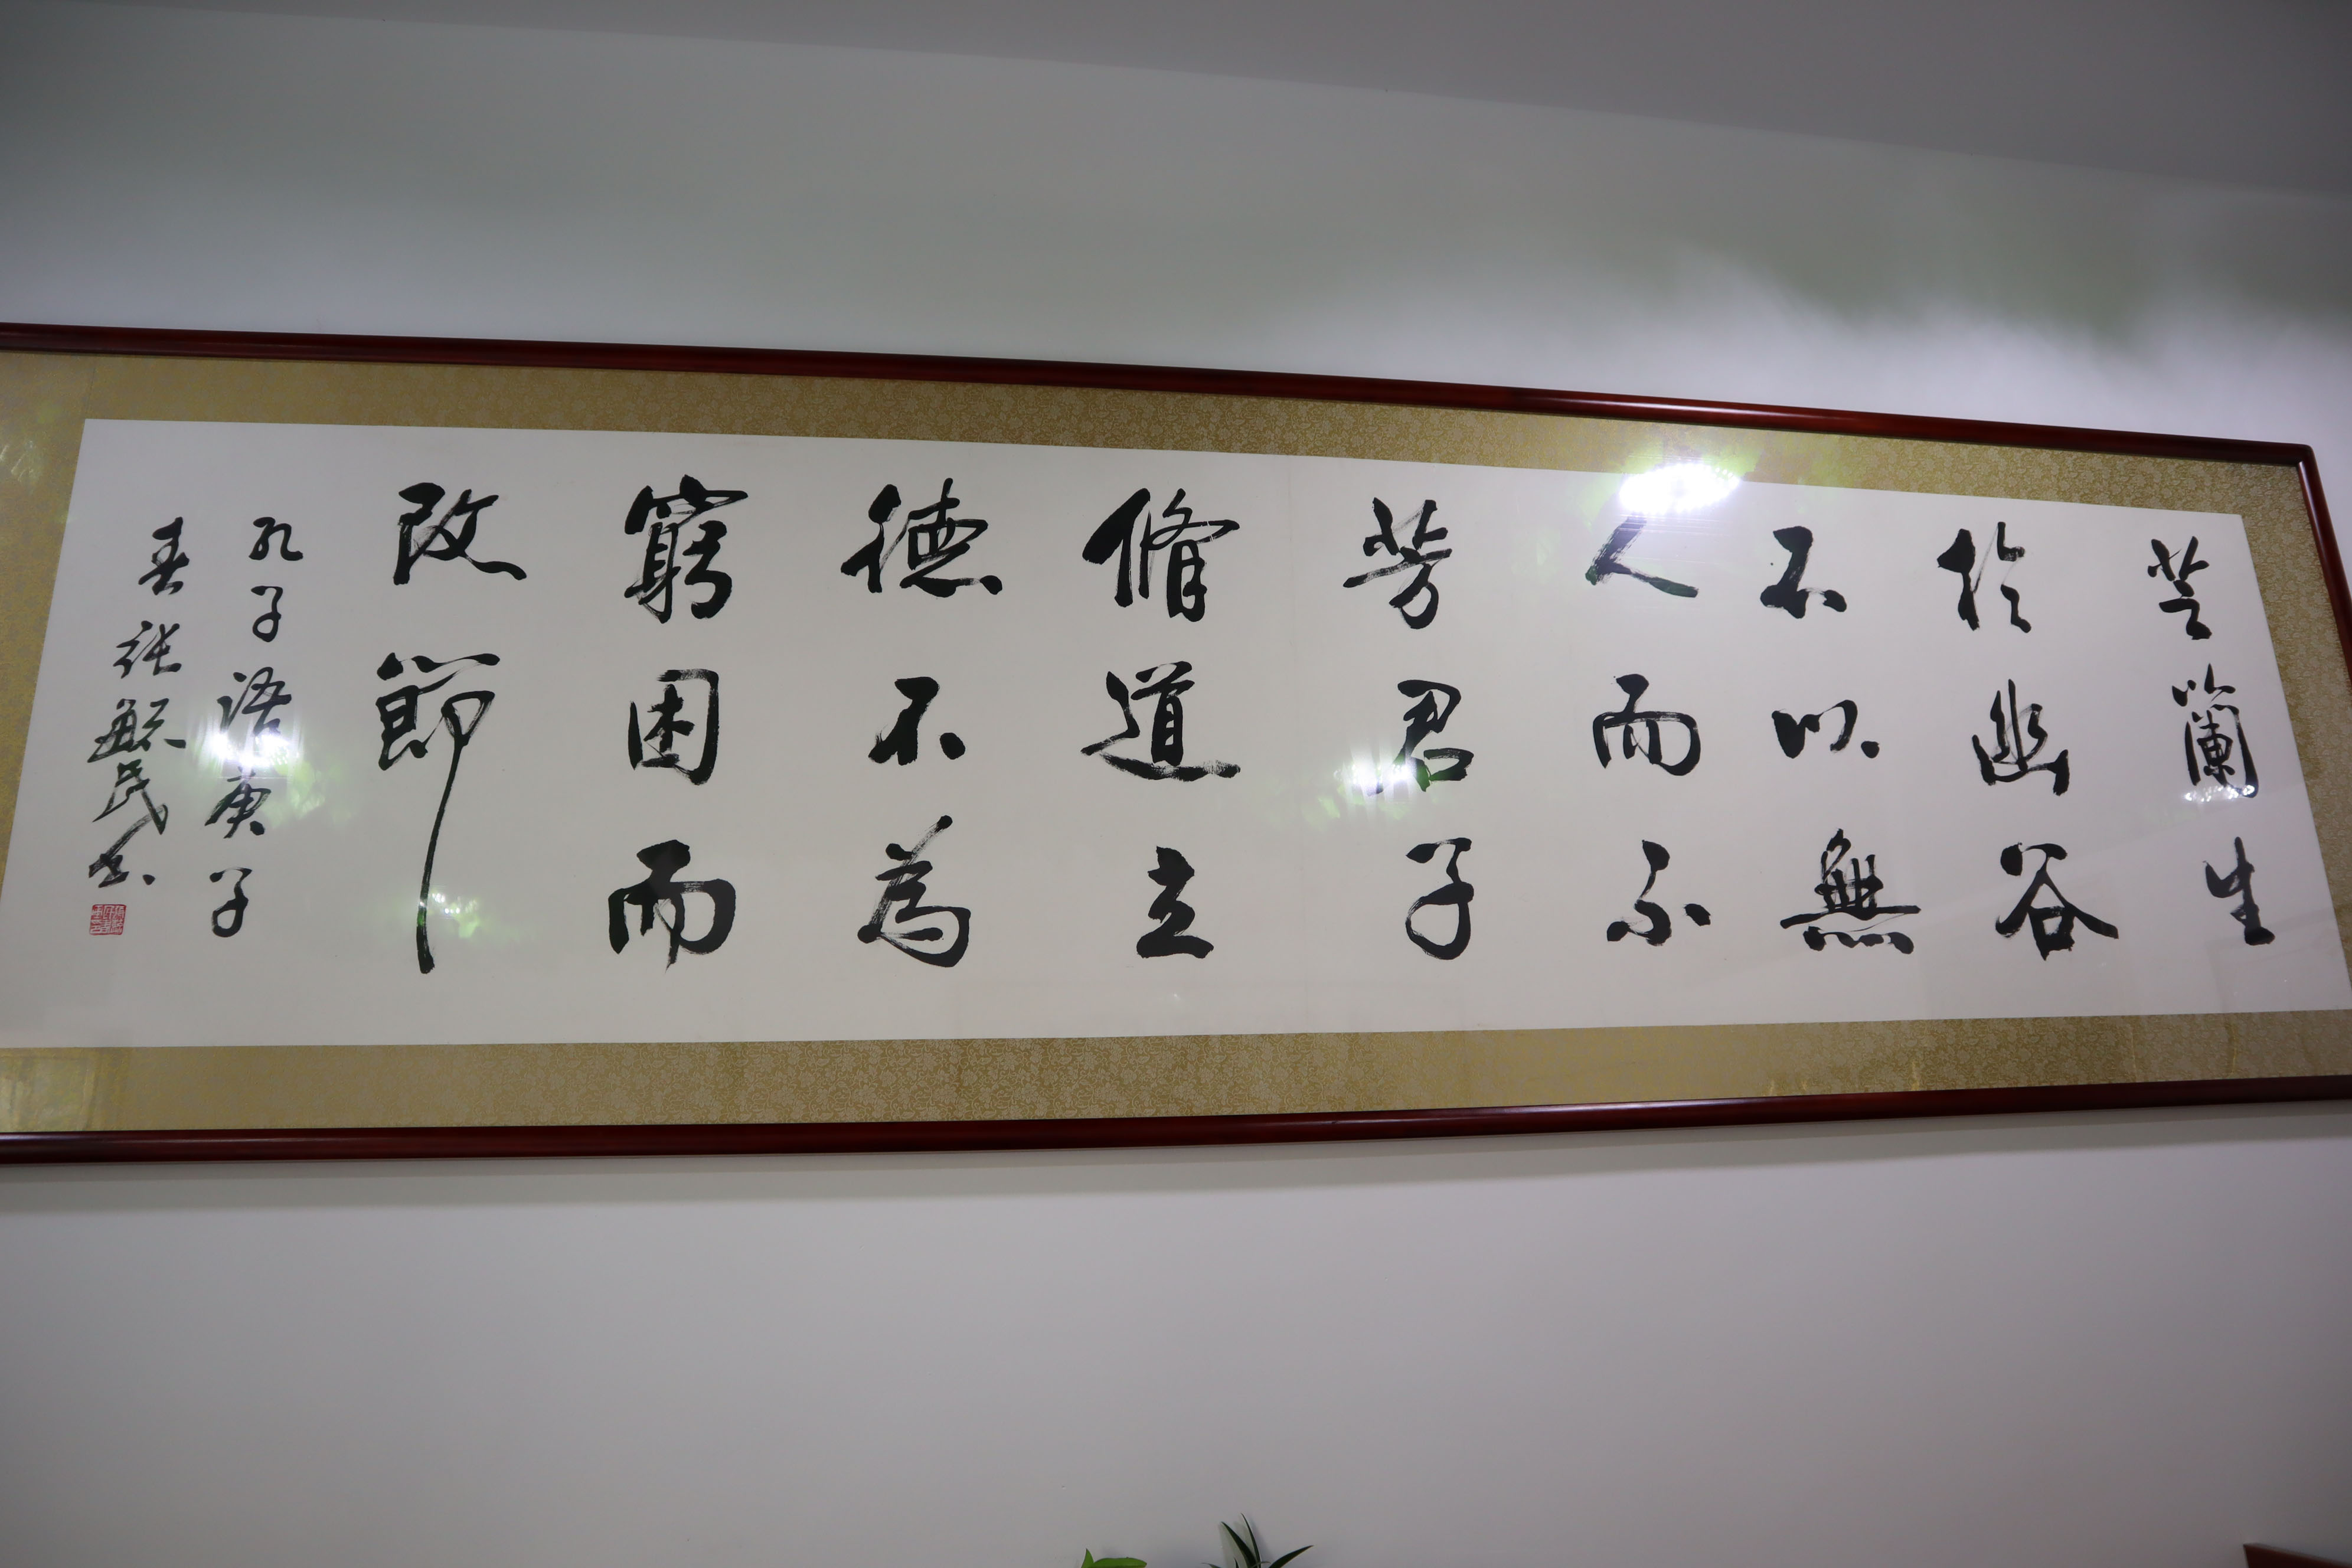 芝蘭生
於幽谷
不以無
人而不
芳君子
脩道立
德不為
窮困而
改節
孔子語庚子
春張毓民書